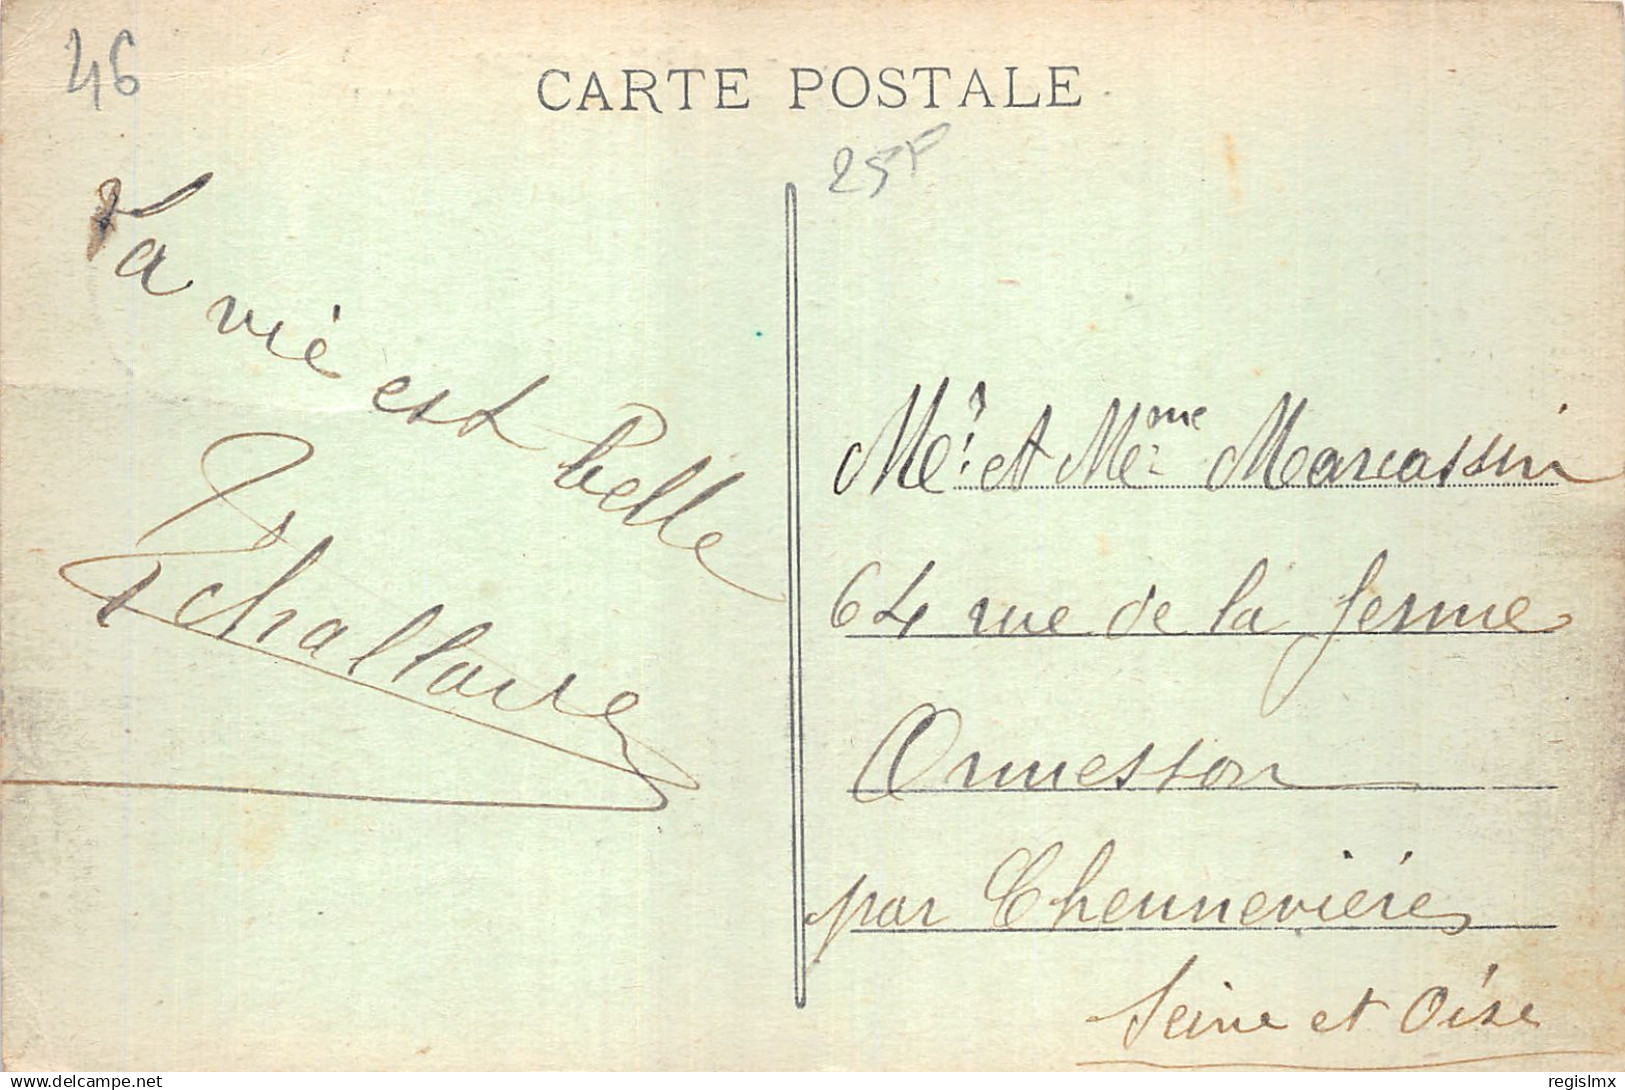 46
CARTE POSTALE
25F
La vie est belle
Mr. et Mme Marcassin
64 rue de la ferme
Ormesson
par Chennevières
Seine et Oise
delcampe.net
regislmx